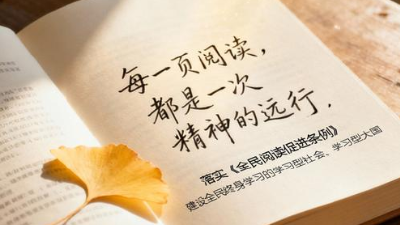 每一页阅读，
都是一次
精神的远行.
落实《全民阅读促进条例》
建设全民终身学习的学习型社会、学习型大国